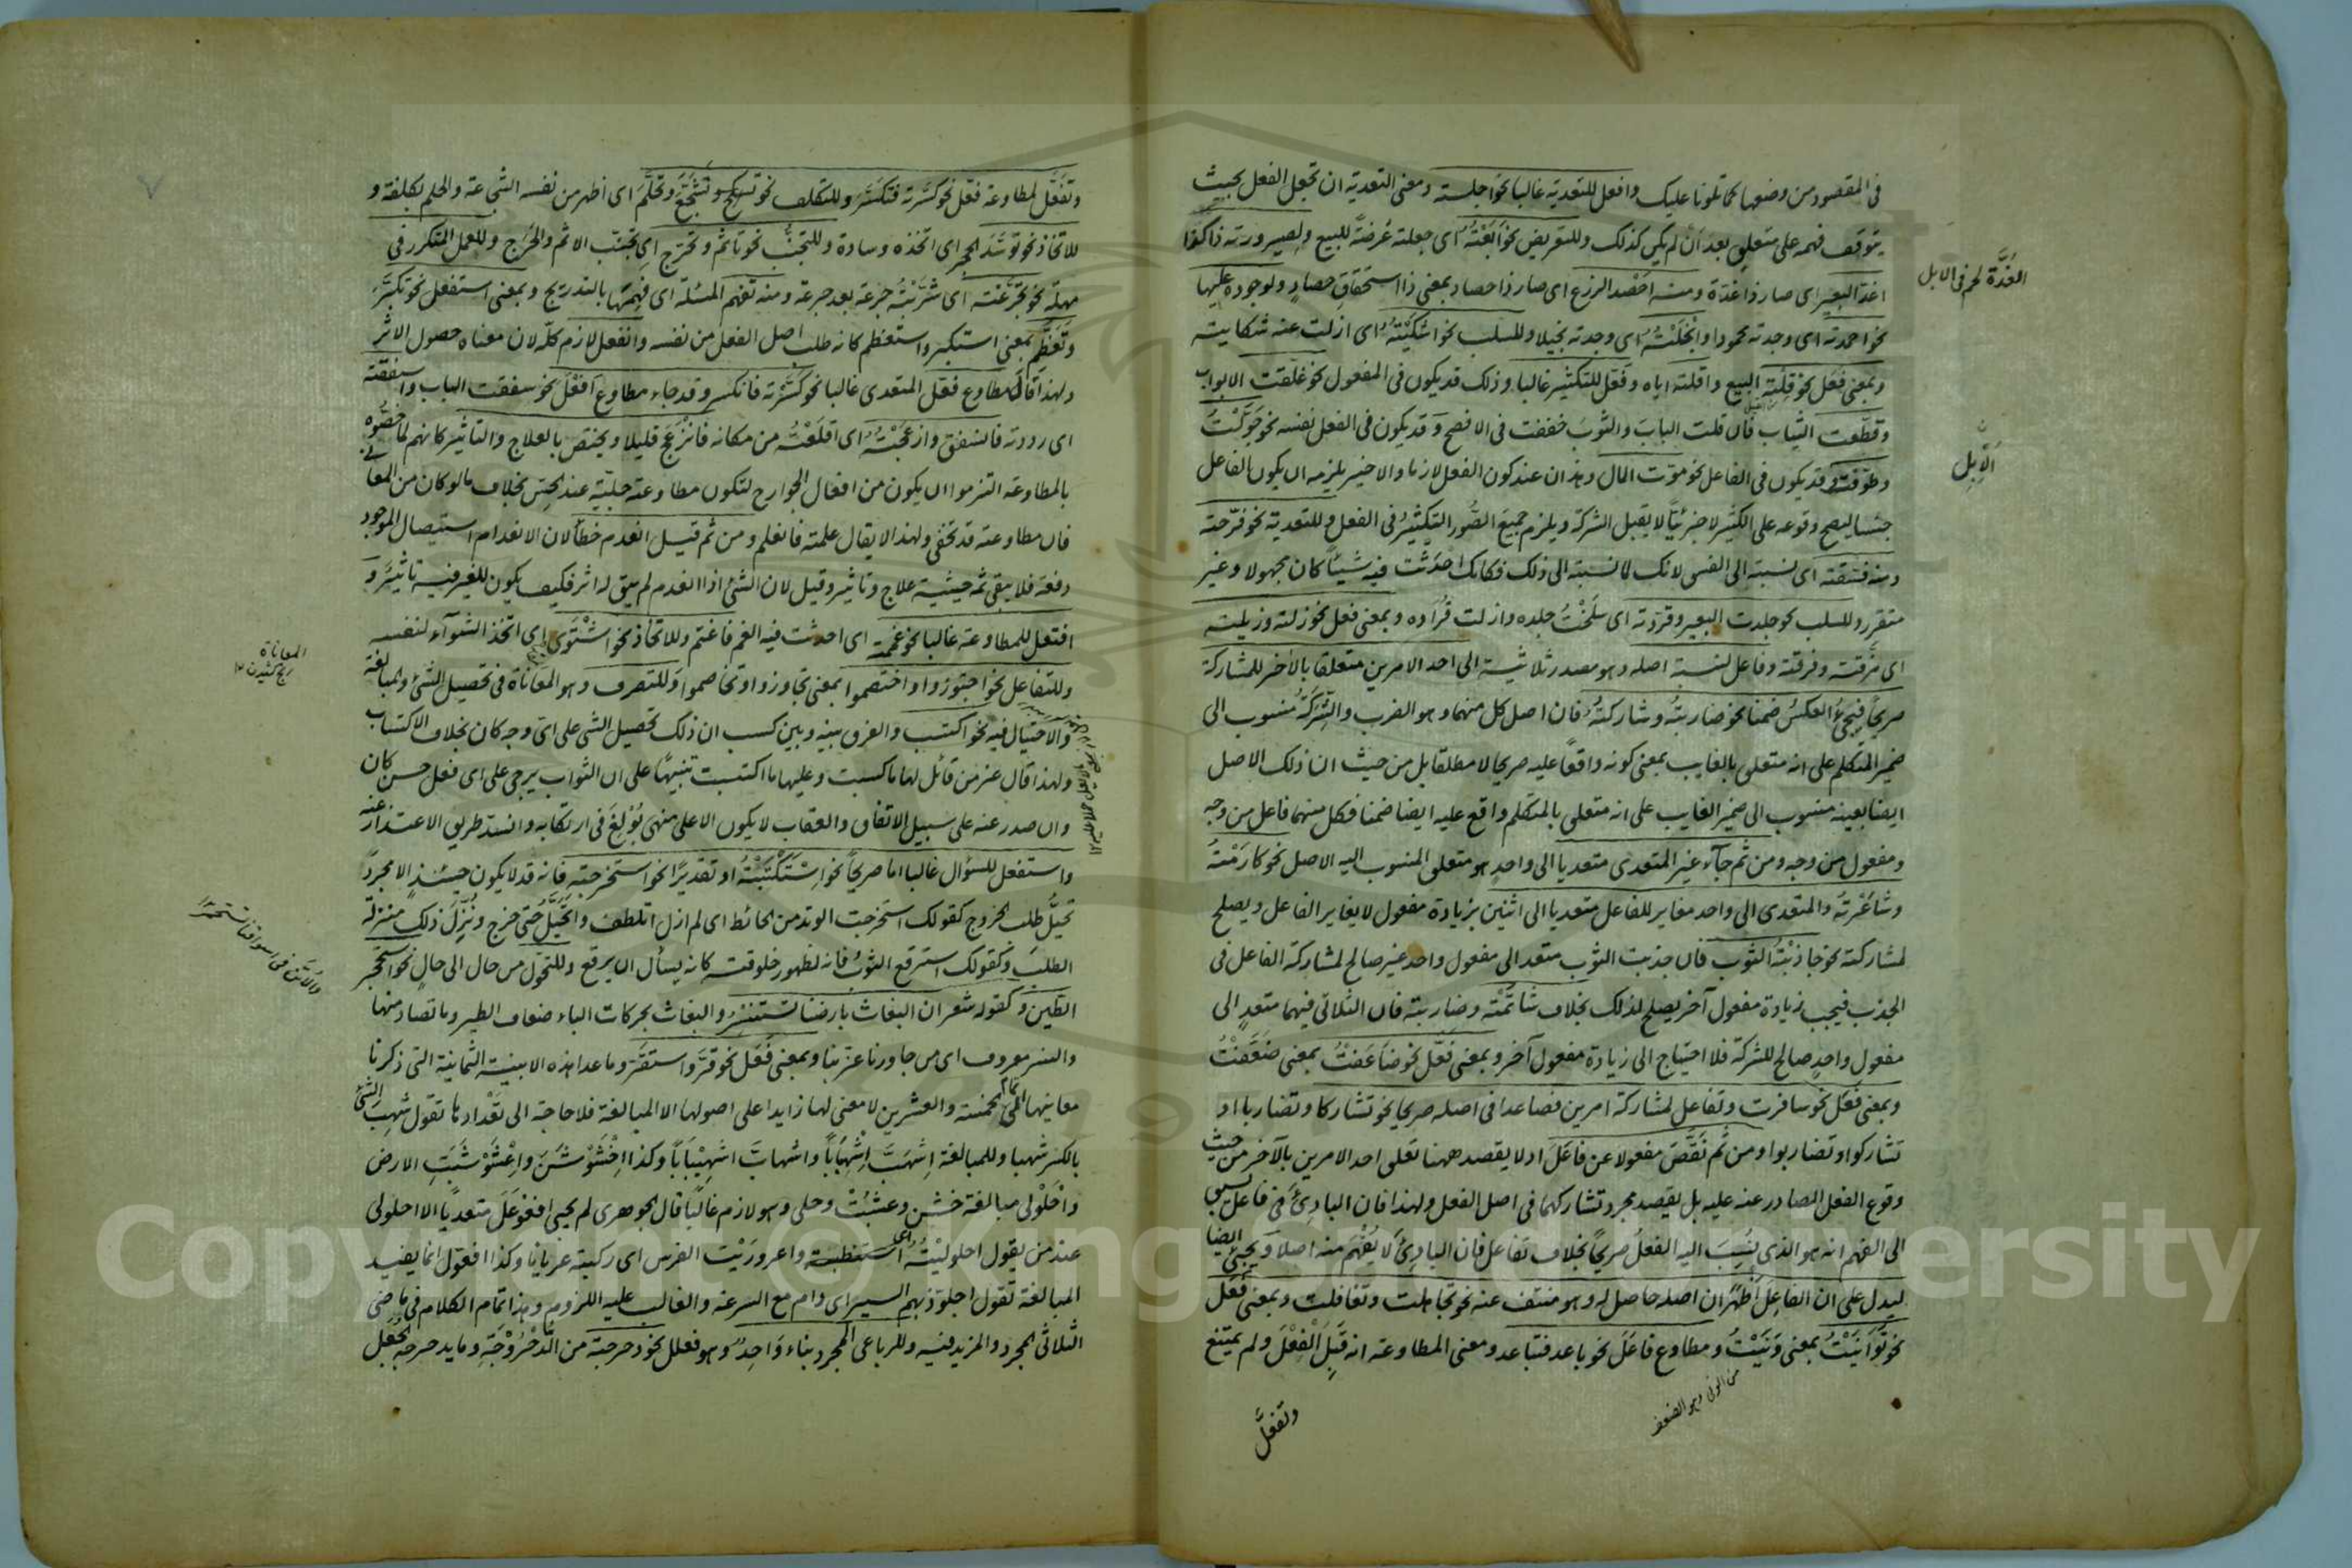 في المقصود من وضعها كما تلونا عليك وافعل للتعدية غالبا نحو اجلسته ومعنى التعدية ان تجعل الفعل بحيث
يتوقف فهمه على متعلق بعد ان لم يكن كذلك وللتعريض نحو اَبَعْتُهُ اى جعلته عُرضةً للبيع ولصيرورته ذا كذا نحو
اغدّ البعير اى صار ذا غدّة ومنه اَحْصد الزرع اى صار ذا حصاد بمعنى ذا استحقاقِ حصادٍ ولوجوده عليها
نحو احمدته اى وجدته محمودا واَبْخَلْتُهُ اى وجدته بخيلا وللسلب نحو اشكَيْتُهُ اى ازلت عنه شكايته
وبمعنى فعَل نحو قِلْتُه البيع واقلته اياه وفَعّل للتكثير غالبا وذلك قد يكون فى المفعول نحو غلّقت الابواب
وقطّعت الثياب فان قلت البابَ والثوبَ خففت فى الافصح وقد يكون فى الفعل نفسه نحو جَوَّلْتُ
وطوّفت وقد يكون فى الفاعل نحو موّتت المال وهذان عند كون الفعل لازما والاخير يلزمه ان يكون الفاعل
جنسا ليصح وقوعه على الكثير لا جزئيًّا لا يقبل الشركة ويلزم جميعَ الصُّور التكثيرُ فى الفعل وللتعدية نحو فرّحته
ومنه فسّقته اى نسبته الى الفسق لانك لما نسبته الى ذلك فكانك احدَثت فيه شيئًا كان مجهولا وغير
متقرر وللسلب نحو جلدت البعير وقرّدته اى سلَخْتُ جلده وازلت قُراده وبمعنى فعل نحو زلته وزيلته
اى مزّقته وفرقته وفاعل لنسبة اصله وهو مصدر ثلاثيه الى احد الامرين متعلقا بالآخر للمشاركة
صريحًا فيجىُٔ العكسُ ضمنا نحو ضاربتُه وشاركتُهُ فان اصل كل منهما وهو الضرب والشركة منسوب الى
ضمير المتكلم على انه متعلق بالغايب بمعنى كونه واقعًا عليه صريحا لا مطلقا بل من حيث ان ذلك الاصل
ايضا بعينه منسوب الى ضمير الغايب على انه متعلق بالمتكلم واقع عليه ايضا ضمنا فكل منهما فاعل من وجه
ومفعول من وجه ومن ثم جآء غير المتعدى متعديا الى واحدٍ هو متعلق المنسوب اليه الاصل نحو كارَمْتُهُ
وشاعَرْتُه والمتعدى الى واحد مغاير للفاعل متعديا الى اثنين بزيادة مفعول لا يغاير الفاعل ويصلح
لمشاركته نحو جاذبْتُه الثوب فان جذبت الثوب متعد الى مفعول واحد غير صالح لمشاركة الفاعل فى
الجذب فيجب زيادة مفعول آخر يصلح لذلك بخلاف شاتمْته وضاربته فان الثلاثى فيهما متعدٍ الى
مفعول واحدٍ صالح للشركة فلا احتياج الى زيادة مفعول آخر وبمعنى فَعَّل نحو ضاعَفتُ بمعنى ضَعَّفْتُ
وبمعنى فَعَل نحو سافرت وتفاعل لمشاركة امرين فصاعدا فى اصله صريحا نحو تشاركا وتضاربا او
تشاركوا وتضاربوا ومن ثم نَقَصَ مفعولا عن فاعَلَ اذ لا يقصد ههنا تعلق احد الامرين بالآخر من حيث
وقوع الفعل الصادر عنه عليه بل يقصد مجرد تشاركهما فى اصل الفعل ولهذا فان البادِئَ فى فاعل يسبق
الى الفهم انه هو الذى نُسِبَ اليه الفعلُ صريحًا بخلاف تفاعل فان البادِئَ لا يُفْهَم منه اصلاً ويجىٔ ايضا
ليدل على ان الفاعل اَظهَرَ ان اصله حاصل له وهو منتف عنه نحو تجاهلت وتغافلت وبمعنى فَعَل
نحو تَوَانَيْتُ بمعنى وَنَيْتُ ومطاوع فاعَلَ نحو باعد فتباعد ومعنى المطاوعة انه قَبِلَ الفِعْلَ ولم يمتنع
من الونى وهو الضعف
وتفعَّل
الغدّة لحم فى الابل
اَلاِبِل
وتفَعَّل لمطاوعة فعّل نحو كسَّرته فتكسَّر وللتكلف نحو تشَجَّعَ وتحَلَّمَ اى اظهر من نفسه الشجاعة والحلم بكلفة و
للاتخاذ نحو توسَّد الحجر اى اتخذه وسادة وللتجنُّب نحو تاثّم وتحرّج اى تجنّب الاثم والحَرَج وللعمل المتكرر فى
مهلة نحو تجرَّعْته اى شَرِبْتُهُ جُرعة بعد جرعة ومنه تفهّم المسئلة اى فهِمَها بالتدريج وبمعنى استفعل نحو تكبَّرَ
وتعَظّم بمعنى استكبر واستعظم كانه طلب اصل الفعل من نفسه وانفعل لازم كلّه لان معناه حصول الاثر
ولهذا قال مطاوع فعّل المتعدى غالبا نحو كسَّرْته فانكسر وقد جاء مطاوع اَفْعَل نحو سفقت الباب واسفقته
اى رددته فانسفق وازعَجْتُه اى اقلَعْتُه من مكانه فانزَعَج قليلا ويختص بالعلاج والتاثير كانهم لما خصُّوه
بالمطاوعة التزموا ان يكون من افعال الجوارح لتكون مطاوعته جليّة عند الحسّ بخلاف ما لو كان من المعانى
فان مطاوعته قد تخفى ولهذا لا يقال علمته فانعلم ومن ثم قيل انعدم خطأ لان الانعدام استيصال الموجود
دفعة فلا يبقى ثمه حيثية علاج وتاثير وقيل لان الشىٔ اذا انعدم لم يبق له اثر فكيف يكون للغير فيه تاثير و
افتعل للمطاوعة غالبا نحو غممته اى احدثت فيه الغم فاغتم وللاتخاذ نحو اشْتَوى اى اتخذ الشوآء لنفسه
وللتفاعل نحو اجتوزوا واختصموا بمعنى تجاوزوا وتخاصموا وللتصرف وهو المعاناة فى تحصيل الشىٔ والمبالغة
والاحتيال فيه نحو اكتسب والفرق بينه وبين كسب ان ذلك تحصيل الشى على اىّ وجه كان بخلاف الاكتساب
ولهذا قال عز من قائل لها ما كسبت وعليها ما اكتسبت تنبيهًا على ان الثواب يرجى على اى فعل حسن كان
وان صدر عنه على سبيل الاتفاق والعقاب لا يكون الا على منهى بُولِغَ فى ارتكابه وانسد طريق الاعتذار عنه
واستفعل للسؤال غالبا اما صريحًا نحو استَكْتَبْتُهُ او تقديرًا نحو استخرجته فانه قد لا يكون حينئذ الا مجرد
تحيّل طلب الخروج كقولك استخرجت الوتد من الحائط اى لم ازل اتلطف واتحيّل حتى خرج ونُزِّل ذلك منزلة
الطلب وكقولك استرقع الثوبُ فانه لظهور خلوقته كانه يسأل ان يرقع وللتحوّل من حال الى حال نحو استحجر
الطّين وكقوله شعر ان البغاث بارضنا تستنسرُ والبغاث بحركات الباء ضعاف الطير وما تصاد منها
والنسر معروف اى من جاورنا عزّ بنا وبمعنى فَعَل نحو قرّ واستقرّ وما عدا هذه الابنية الثمانية التى ذكرنا
معانيها الى تمام الخمسة والعشرين لا معنى لها زايدا على اصولها الا المبالغة فلا حاجة الى تعْدادها تقول شهِب الشىٔ
بالكسر شهبا وللمبالغة اِشهَبَّ اِشْهِبَابًا واشهابَّ اشهِيْبَابًا وكذا اِخْشَوْشَنَ واِعْشَوْشَبَتِ الارض
واحْلَوْلى مبالغة خشن وعشُبتْ وحلى وهو لازم غالبا قال الجوهرى لم يجىٔ افعَوْعَلَ متعديًا الا احلولى
عند من يقول احلوليْتُهُ اى استطبته واعرورَيْت الفرس اى ركبته عريانا وكذا افعَوّل انما يفيد
المبالغة تقول اجلوّذ بهم السير اى دام مع السرعة والغالب عليه اللزوم وهذا تمام الكلام فى ماضى
الثلاثى المجرد والمزيد فيه وللرباعى المجرد بناء وَاحِدٌ وهو فعلل نحو دحرجته من الدُّحْرُوْجَةِ وما يدحرجه الجُعَل
المعاناة
رنج كشيدن ١٢